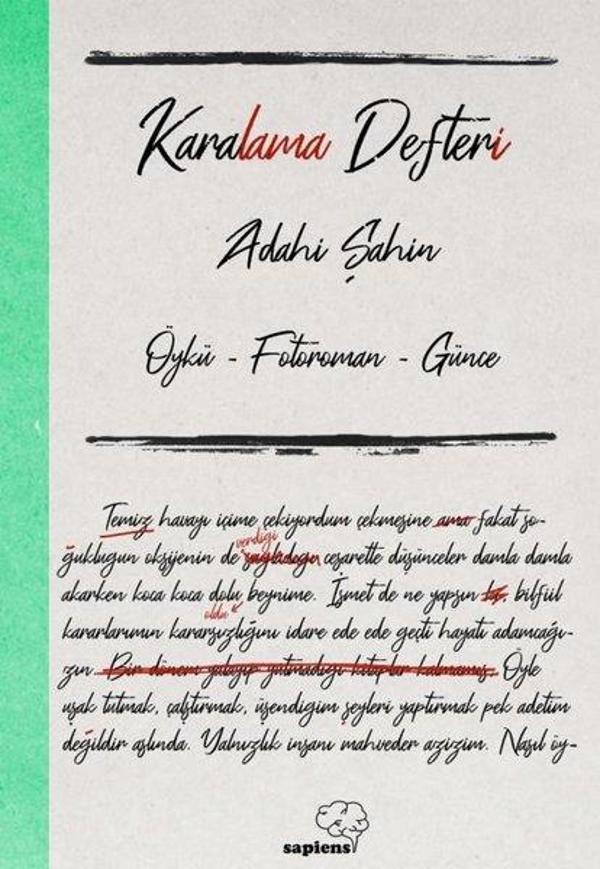 Karalama Defteri
Adahi Şahin
Öykü - Fotoroman - Günce
Temiz havayı içime çekiyordum çekmesine ama fakat so-
verdiği
ğukluğun oksijenin de sağladığı cesaretle düşünceler damla damla
akarken koca koca dolu beynime. İsmet de ne yapsın bilfiil
oldu
kararlarımın kararsızlığını idare ede ede geçti hayatı adamcağı-
zın. Bir dönem yalayıp yutmadığı kitaplar kalmamış. Öyle
uşak tutmak, çalıştırmak, üşendiğim şeyleri yaptırmak pek adetim
değildir aslında. Yalnızlık insanı mahveder azizim. Nasıl öy-
sapiens